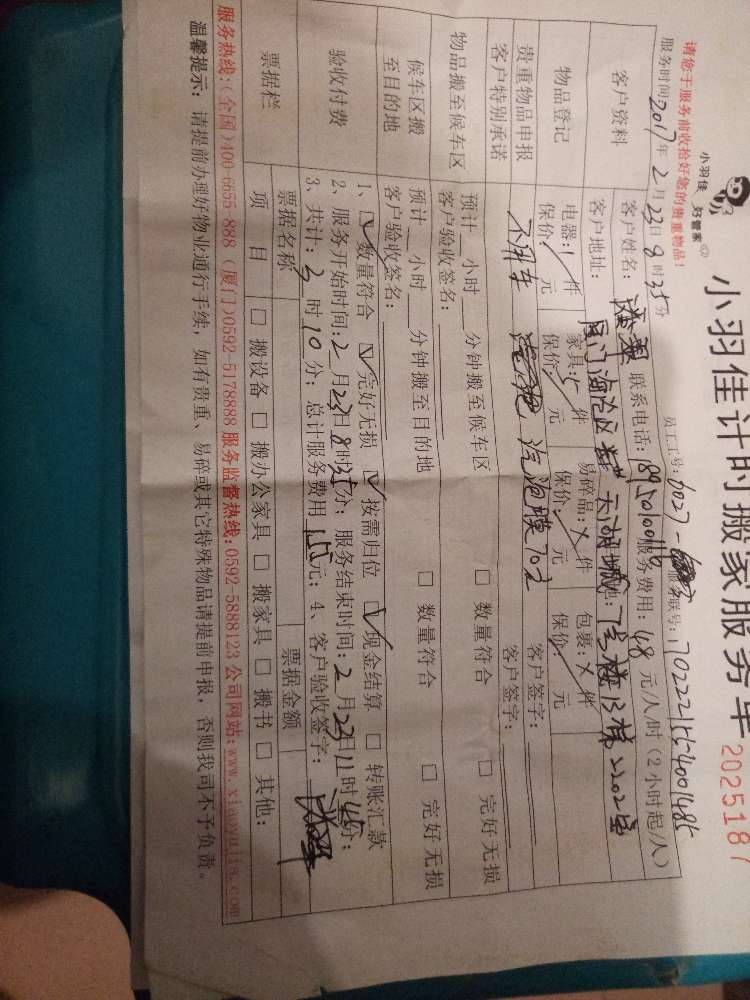 小羽佳 好管家
小羽佳计时搬家服务单
2025187
请您于服务前收拾好您的贵重物品！
员工工号：6027-
服务联号：
服务时间：2017年2月23日8时35分
客户资料
客户姓名：
联系电话：
服务费用：48元/人/时（2小时起/人）
客户地址：
物品登记
电器：1件 家具：5件 易碎品：×件 包裹：×件
保价：/元 保价：/元 保价：/元 保价：/元
贵重物品申报
客户特别承诺
不用车
汽泡膜702
客户签字：
客户签字：
物品搬至候车区
预计 小时 分钟搬至候车区 □ 数量符合 □ 完好无损
客户验收签名：
候车区搬至目的地
预计 小时 分钟搬至目的地 □ 数量符合 □ 完好无损
客户验收签名：
验收付费
1、☑ 数量符合 ☑ 完好无损 ☑ 按需归位 ☑ 现金结算 □ 转账汇款
2、服务开始时间：2月23日8时35分；服务结束时间：2月23日11时45分；
3、共计：3时10分；总计服务费用155元；4、客户验收签字：
票据栏
票据名称 票据金额
项目 □ 搬设备 □ 搬办公家具 □ 搬家具 □ 搬书 □ 其他：
服务热线：（全国）400-6655-888（厦门）0592-5178888 服务监督热线：0592-5888123 公司网站：www.xiaoyujia.com
温馨提示：请提前办理好物业通行手续，如有贵重、易碎或其它特殊物品请提前申报，否则我司不予负责。